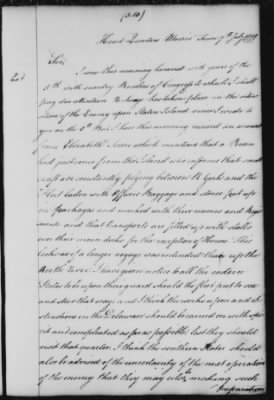 (310)
Head Quarters Morris Town 7th July 1777
Sir,
I was this morning honored with yours of the
5th with sundry Resolves of Congress to which I shall
pay due attention No change has taken place in the situa
tion of the Enemy upon Staten Island since I wrote to
you on the 5th Inst. I have this morning received an account
from Elizabeth Town which mentions that a Person
had just come from the Island who informs that small
craft are constantly plying between N York and the
Fleet laden with Officers Baggage and stores put up
in packages and marked with their names and Regi
ments and that transports are fitted up with stalls
over their main decks for the reception of Horses This
looks as if a longer voyage was intended than up the
North River I have given notice to all the eastern
States to be upon their guard should the fleet put to sea
and steer that way and I think the works upon and ob
structions in the Delaware should be carried on with spi
rit and compleated as far as possible lest they should
visit that quarter. I think the southern States should
also be advised of the uncertainty of the next operation
of the enemy that they may also be making such
preparations